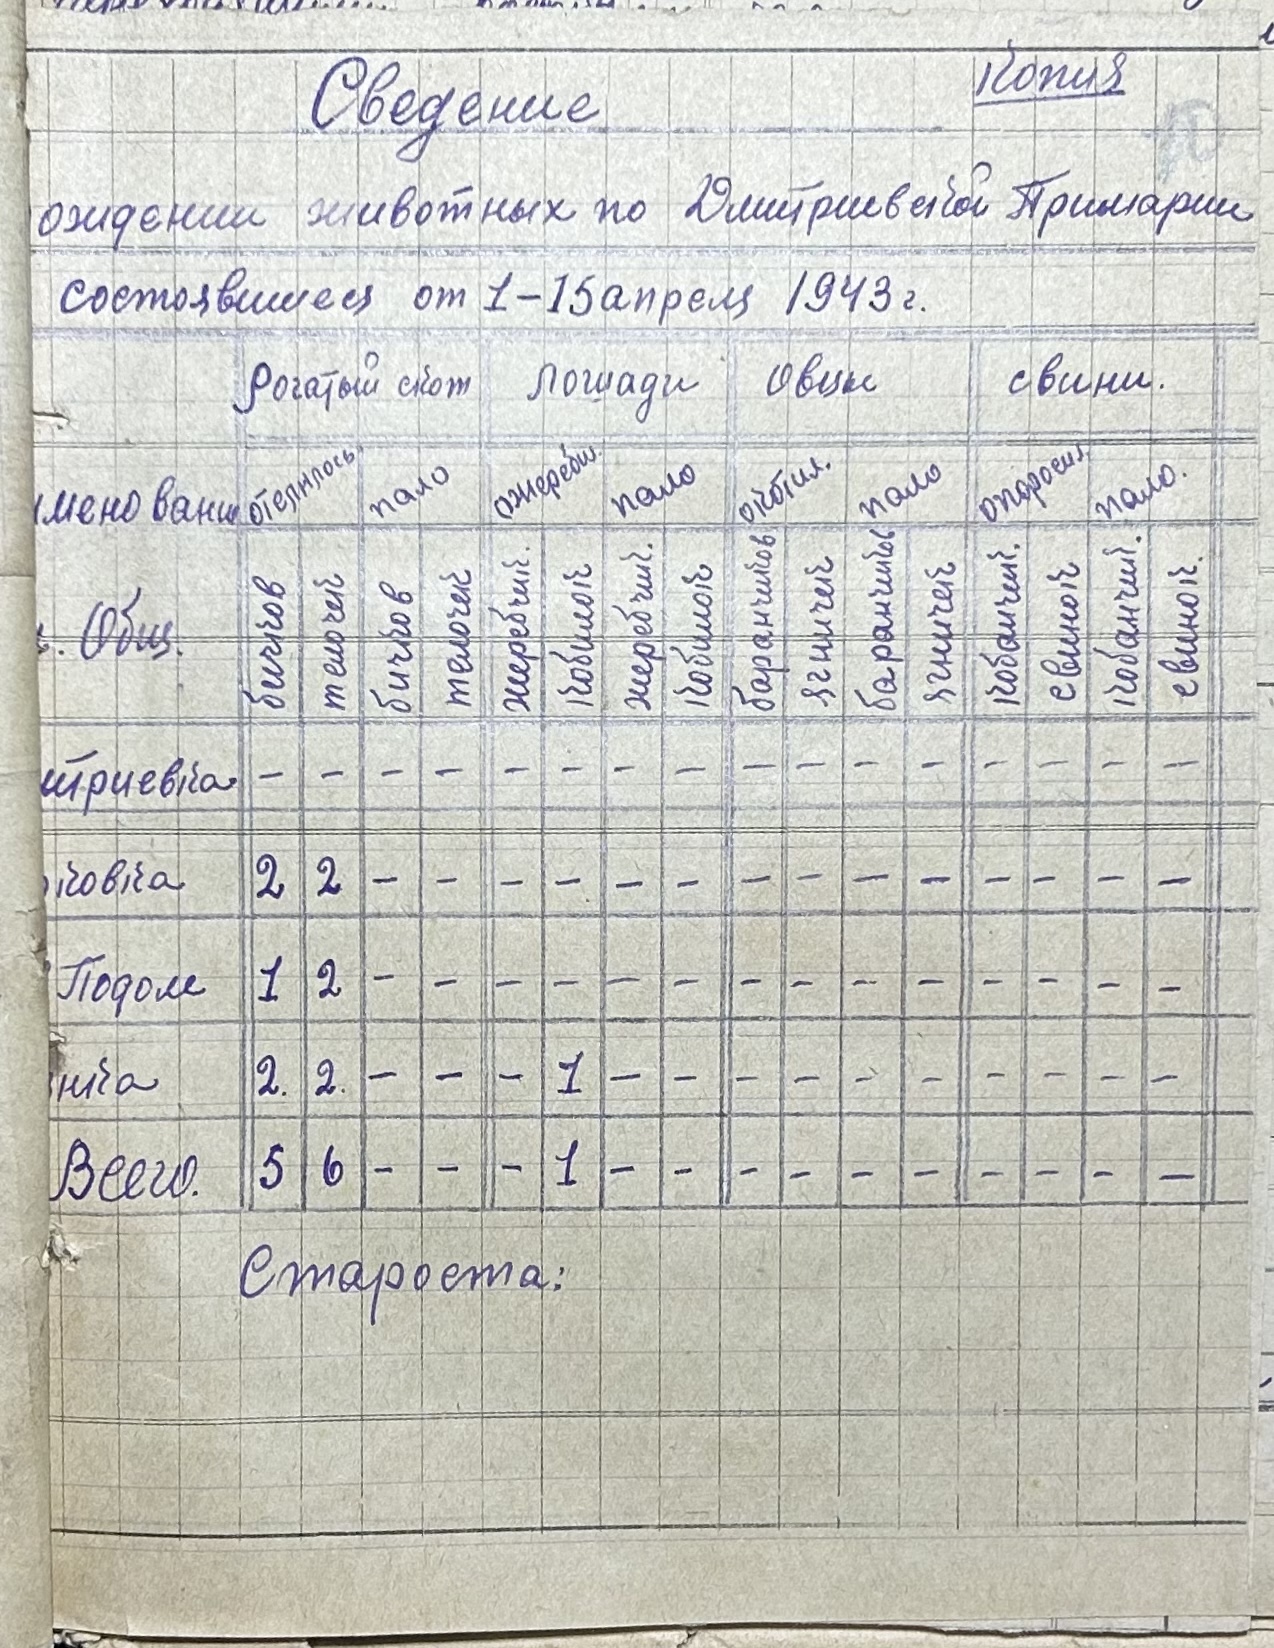 Копия
Сведение
ождении животных по Дмитриевской Примарии
состоявшиеся от 1-15 апреля 1943 г.
Рогатый скот лошади Овцы свини.
именовани отелилось пало ожереби. пало окотил. пало опоросил пало.
. Общ. бичков телочек бичков телочек жеребчик. кобилок жеребчик. кобилок баранчиков ягничек баранчиков ягничек кобанчик. свинок кобанчик. свинок.
итриевка - - - - - - - - - - - - - - - -
ковка 2 2 - - - - - - - - - - - - - -
Подоле 1 2 - - - - - - - - - - - - - -
нка 2. 2. - - - 1 - - - - - - - - - -
Всего. 5 6 - - - 1 - - - - - - - - - -
Староста: